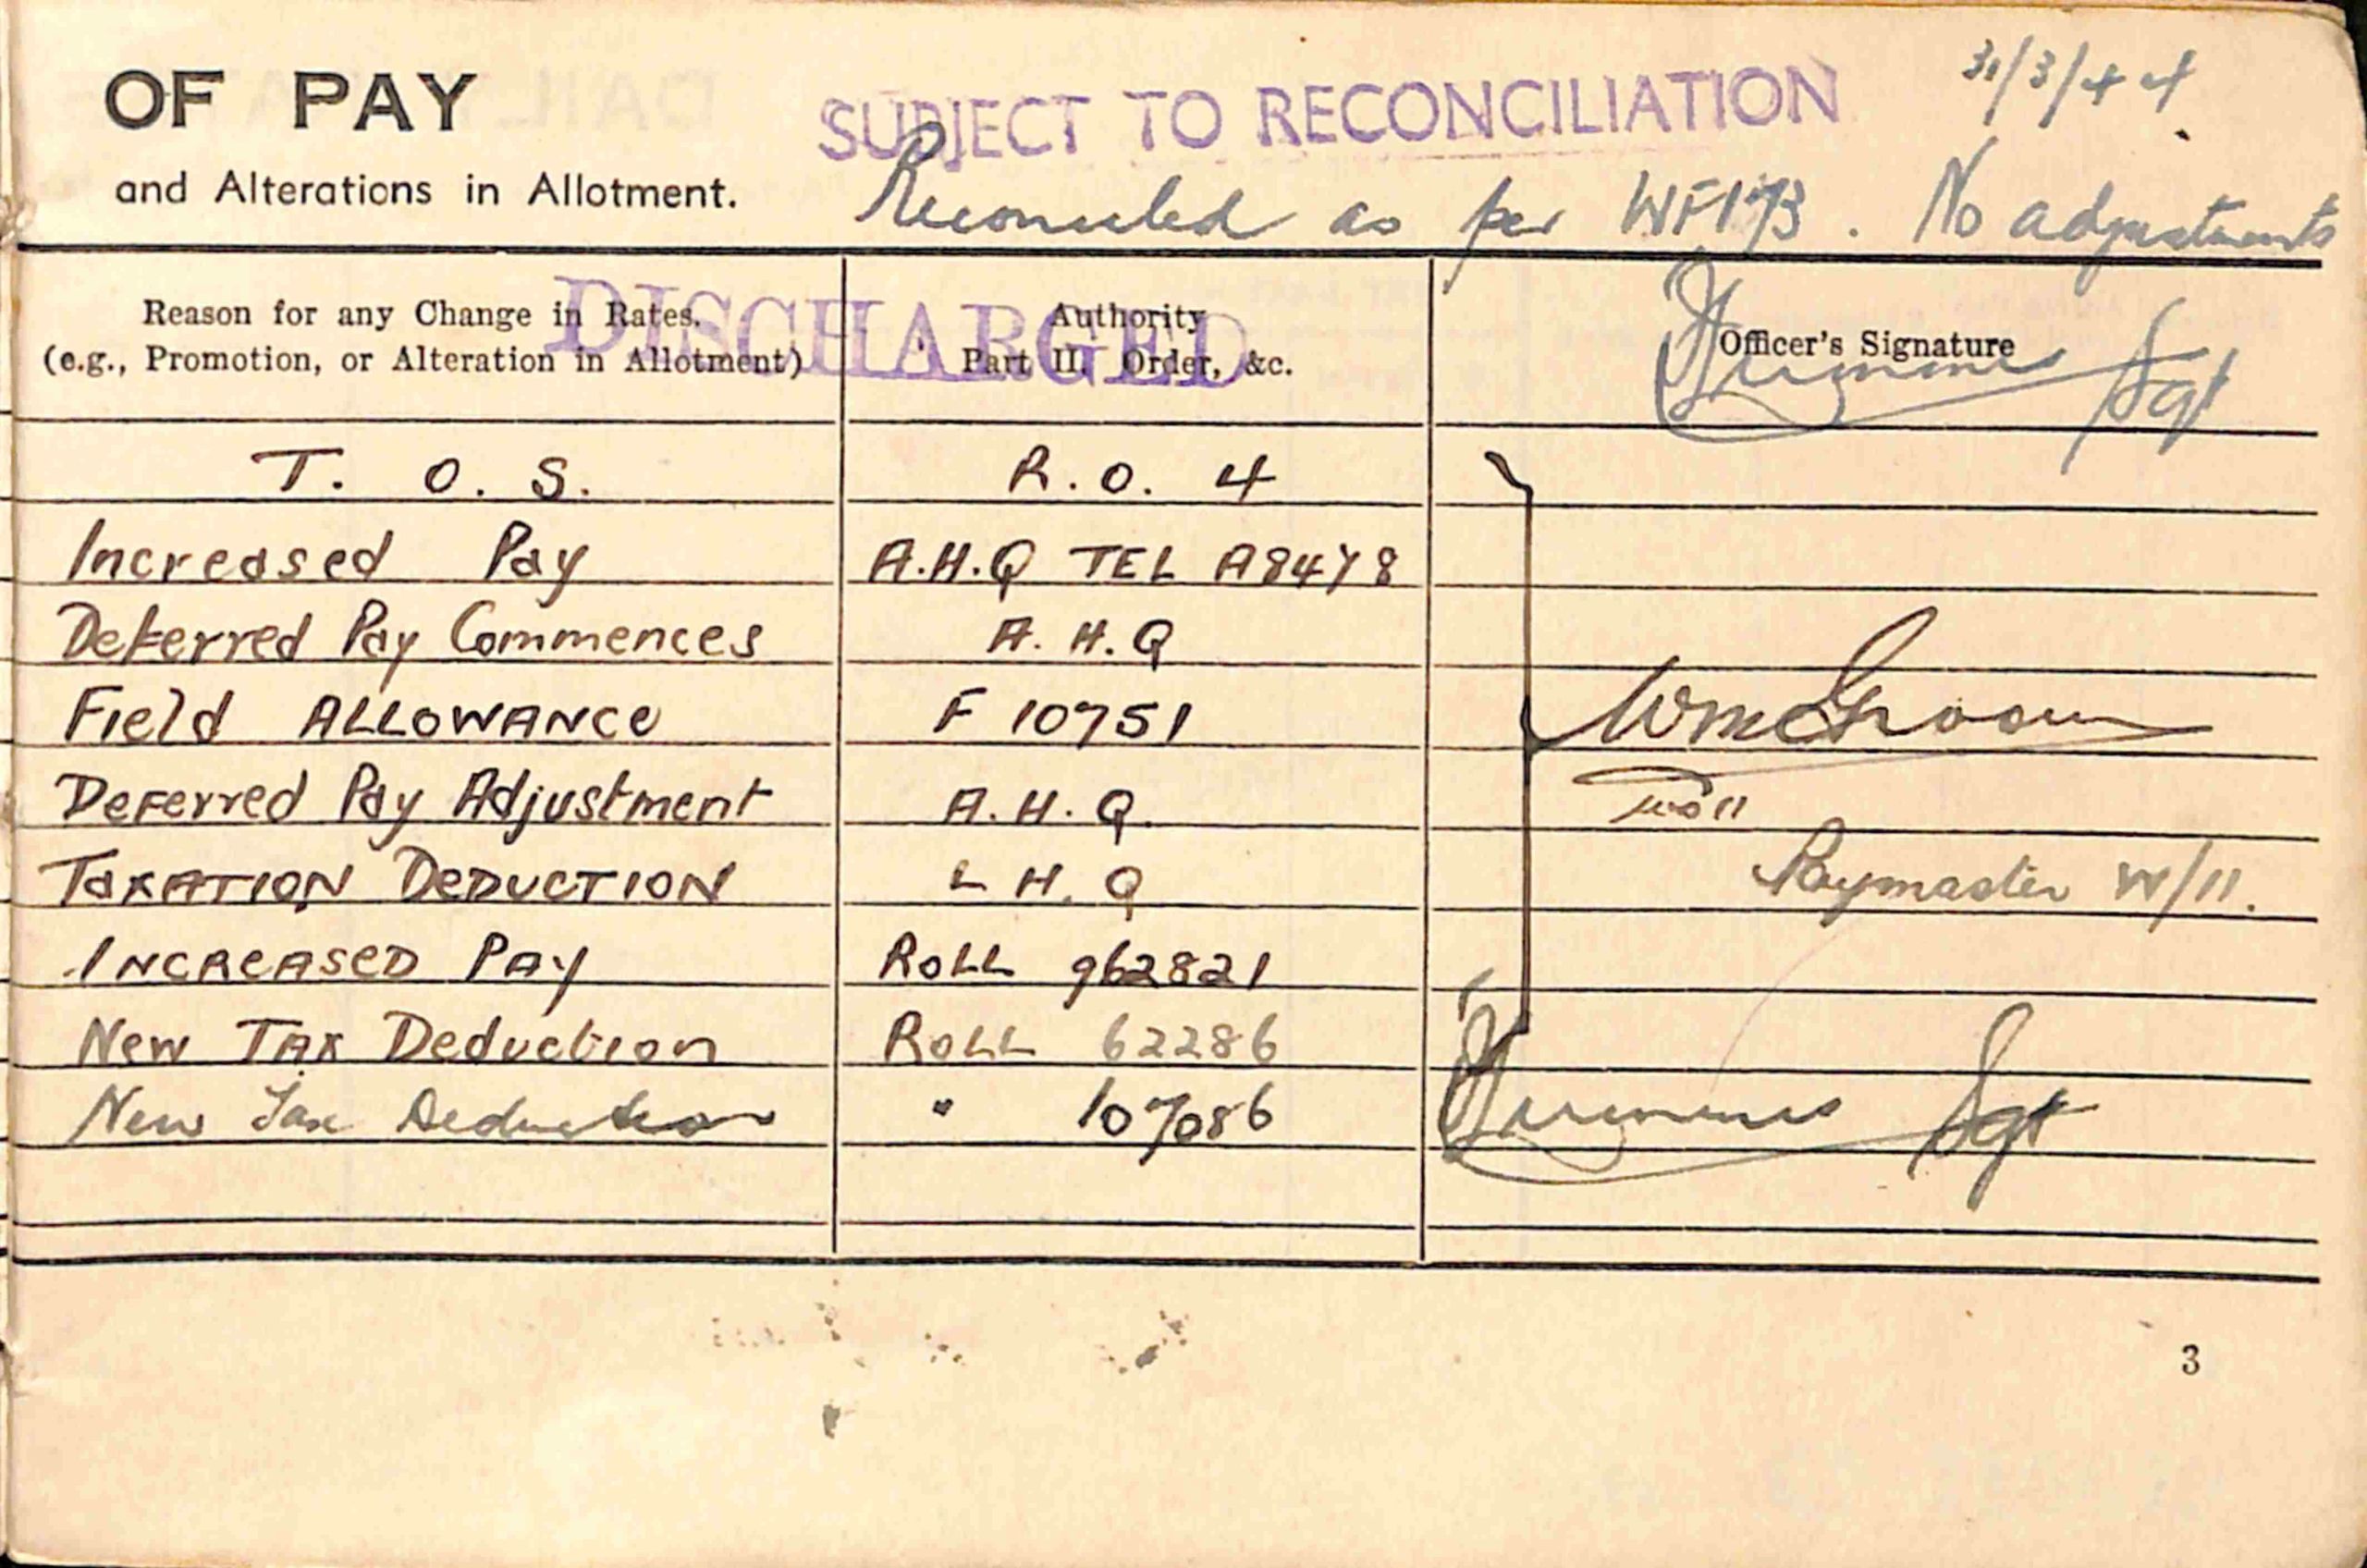 31/3/44
OF PAY SUBJECT TO RECONCILIATION
and Alterations in Allotment. Reconciled as per WF173. No adjustments
DISCHARGED
Reason for any Change in Rates. Authority Officer's Signature
(e.g., Promotion, or Alteration in Allotment) Part II. Order, &c. Sgt
T. O. S. R.O. 4
Increased Pay A.H.Q TEL A8478
Deferred Pay Commences A.H.Q
Field ALLOWANCE F 10751
Deferred Pay Adjustment A.H.Q.
WO II
TAXATION DEDUCTION L H.Q Paymaster W/11.
INCREASED PAY ROLL 962821
New TAX Deduction ROLL 62286
New Tax Deduction " 107086 Sgt
3